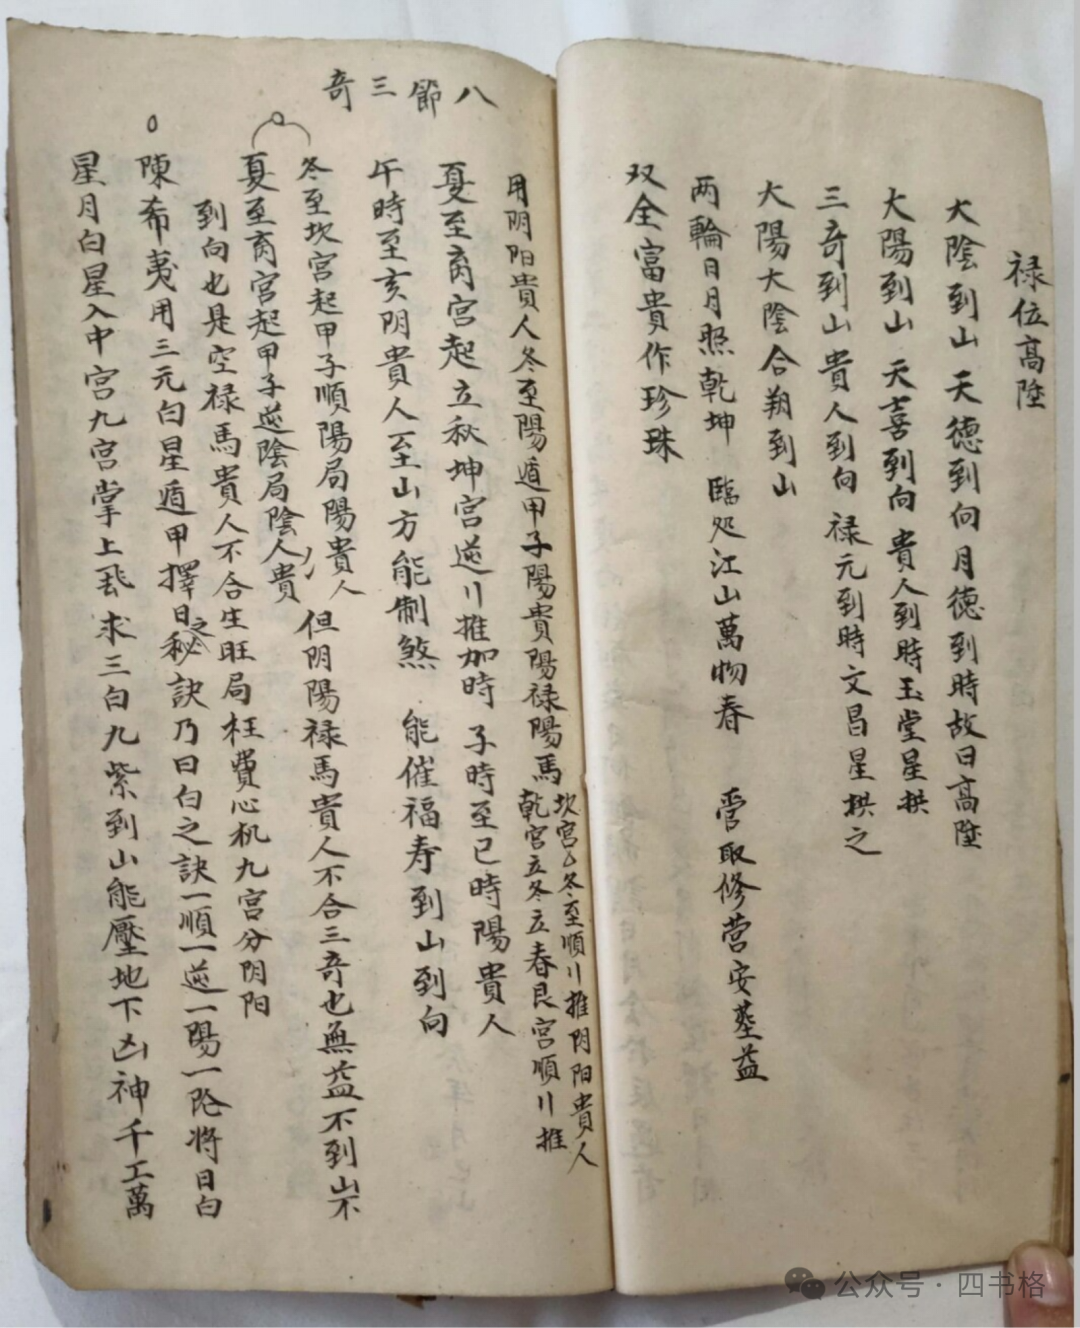 禄位高陞
大陰到山 天德到向 月德到時故曰高陞
大陽到山 天喜到向 貴人到時玉堂星拱
三奇到山 貴人到向 禄元到時文昌星拱之
大陽大陰合朔到山
两輪日月照乾坤 臨処江山萬物春 管取修营安墓益
双全富貴作珍珠
八節三奇
用阴阳貴人冬至陽遁甲子陽貴陽禄陽馬
坎宫冬至順川推阴阳貴人
乾宫立冬立春艮宫順川推
夏至离宫起立秋坤宫逆川推加時 子時至巳時陽貴人
午時至亥阴貴人至山方能制煞 能催福寿到山到向
冬至坎宫起甲子順陽局陽貴人
夏至离宫起甲子逆陰局陰人貴
但阴陽禄馬貴人不合三奇也無益不到山不
到向也是空禄馬貴人不合生旺局枉費心机九宫分阴阳
陳希夷用三元白星遁甲擇日之秘訣乃曰白之訣一順一逆一陽一陰将日白
星月白星入中宫九宫掌上飛求三白九紫到山能壓地下凶神千工萬
公众号·四书格